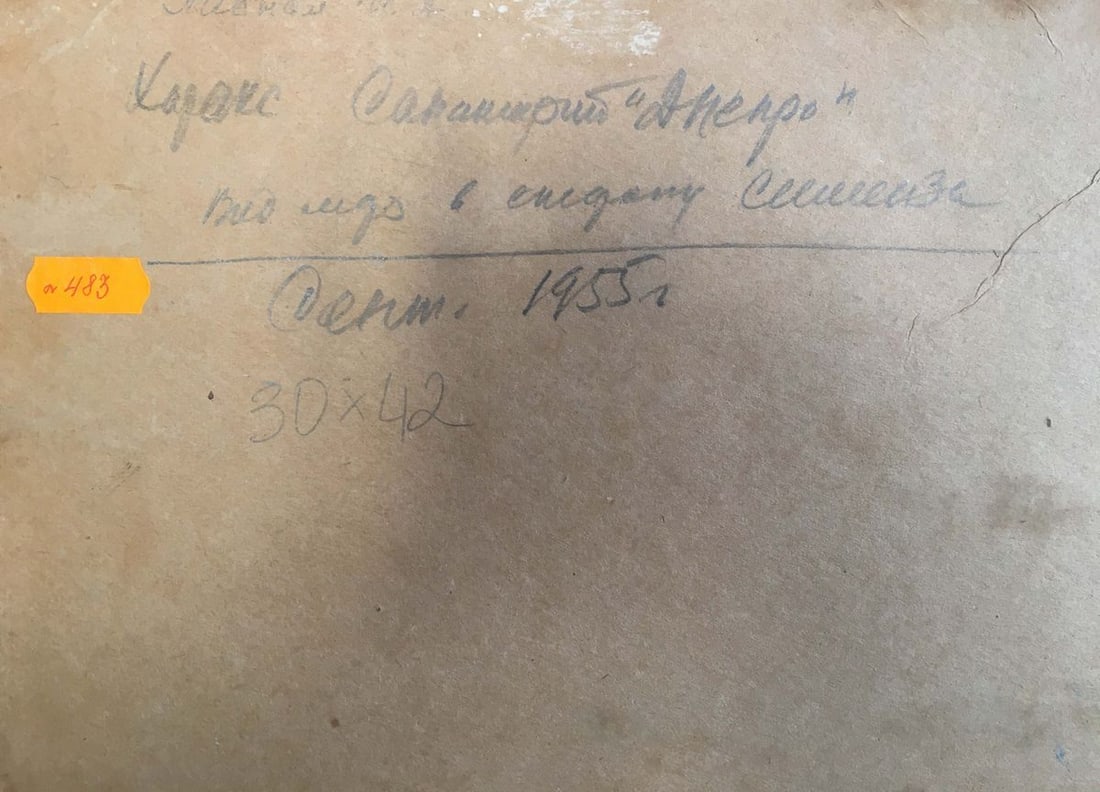 Харакс Санаторий "Днепр"
Вид моря в сторону Симеиза
№ 483
Сент. 1955 г
30 x 42